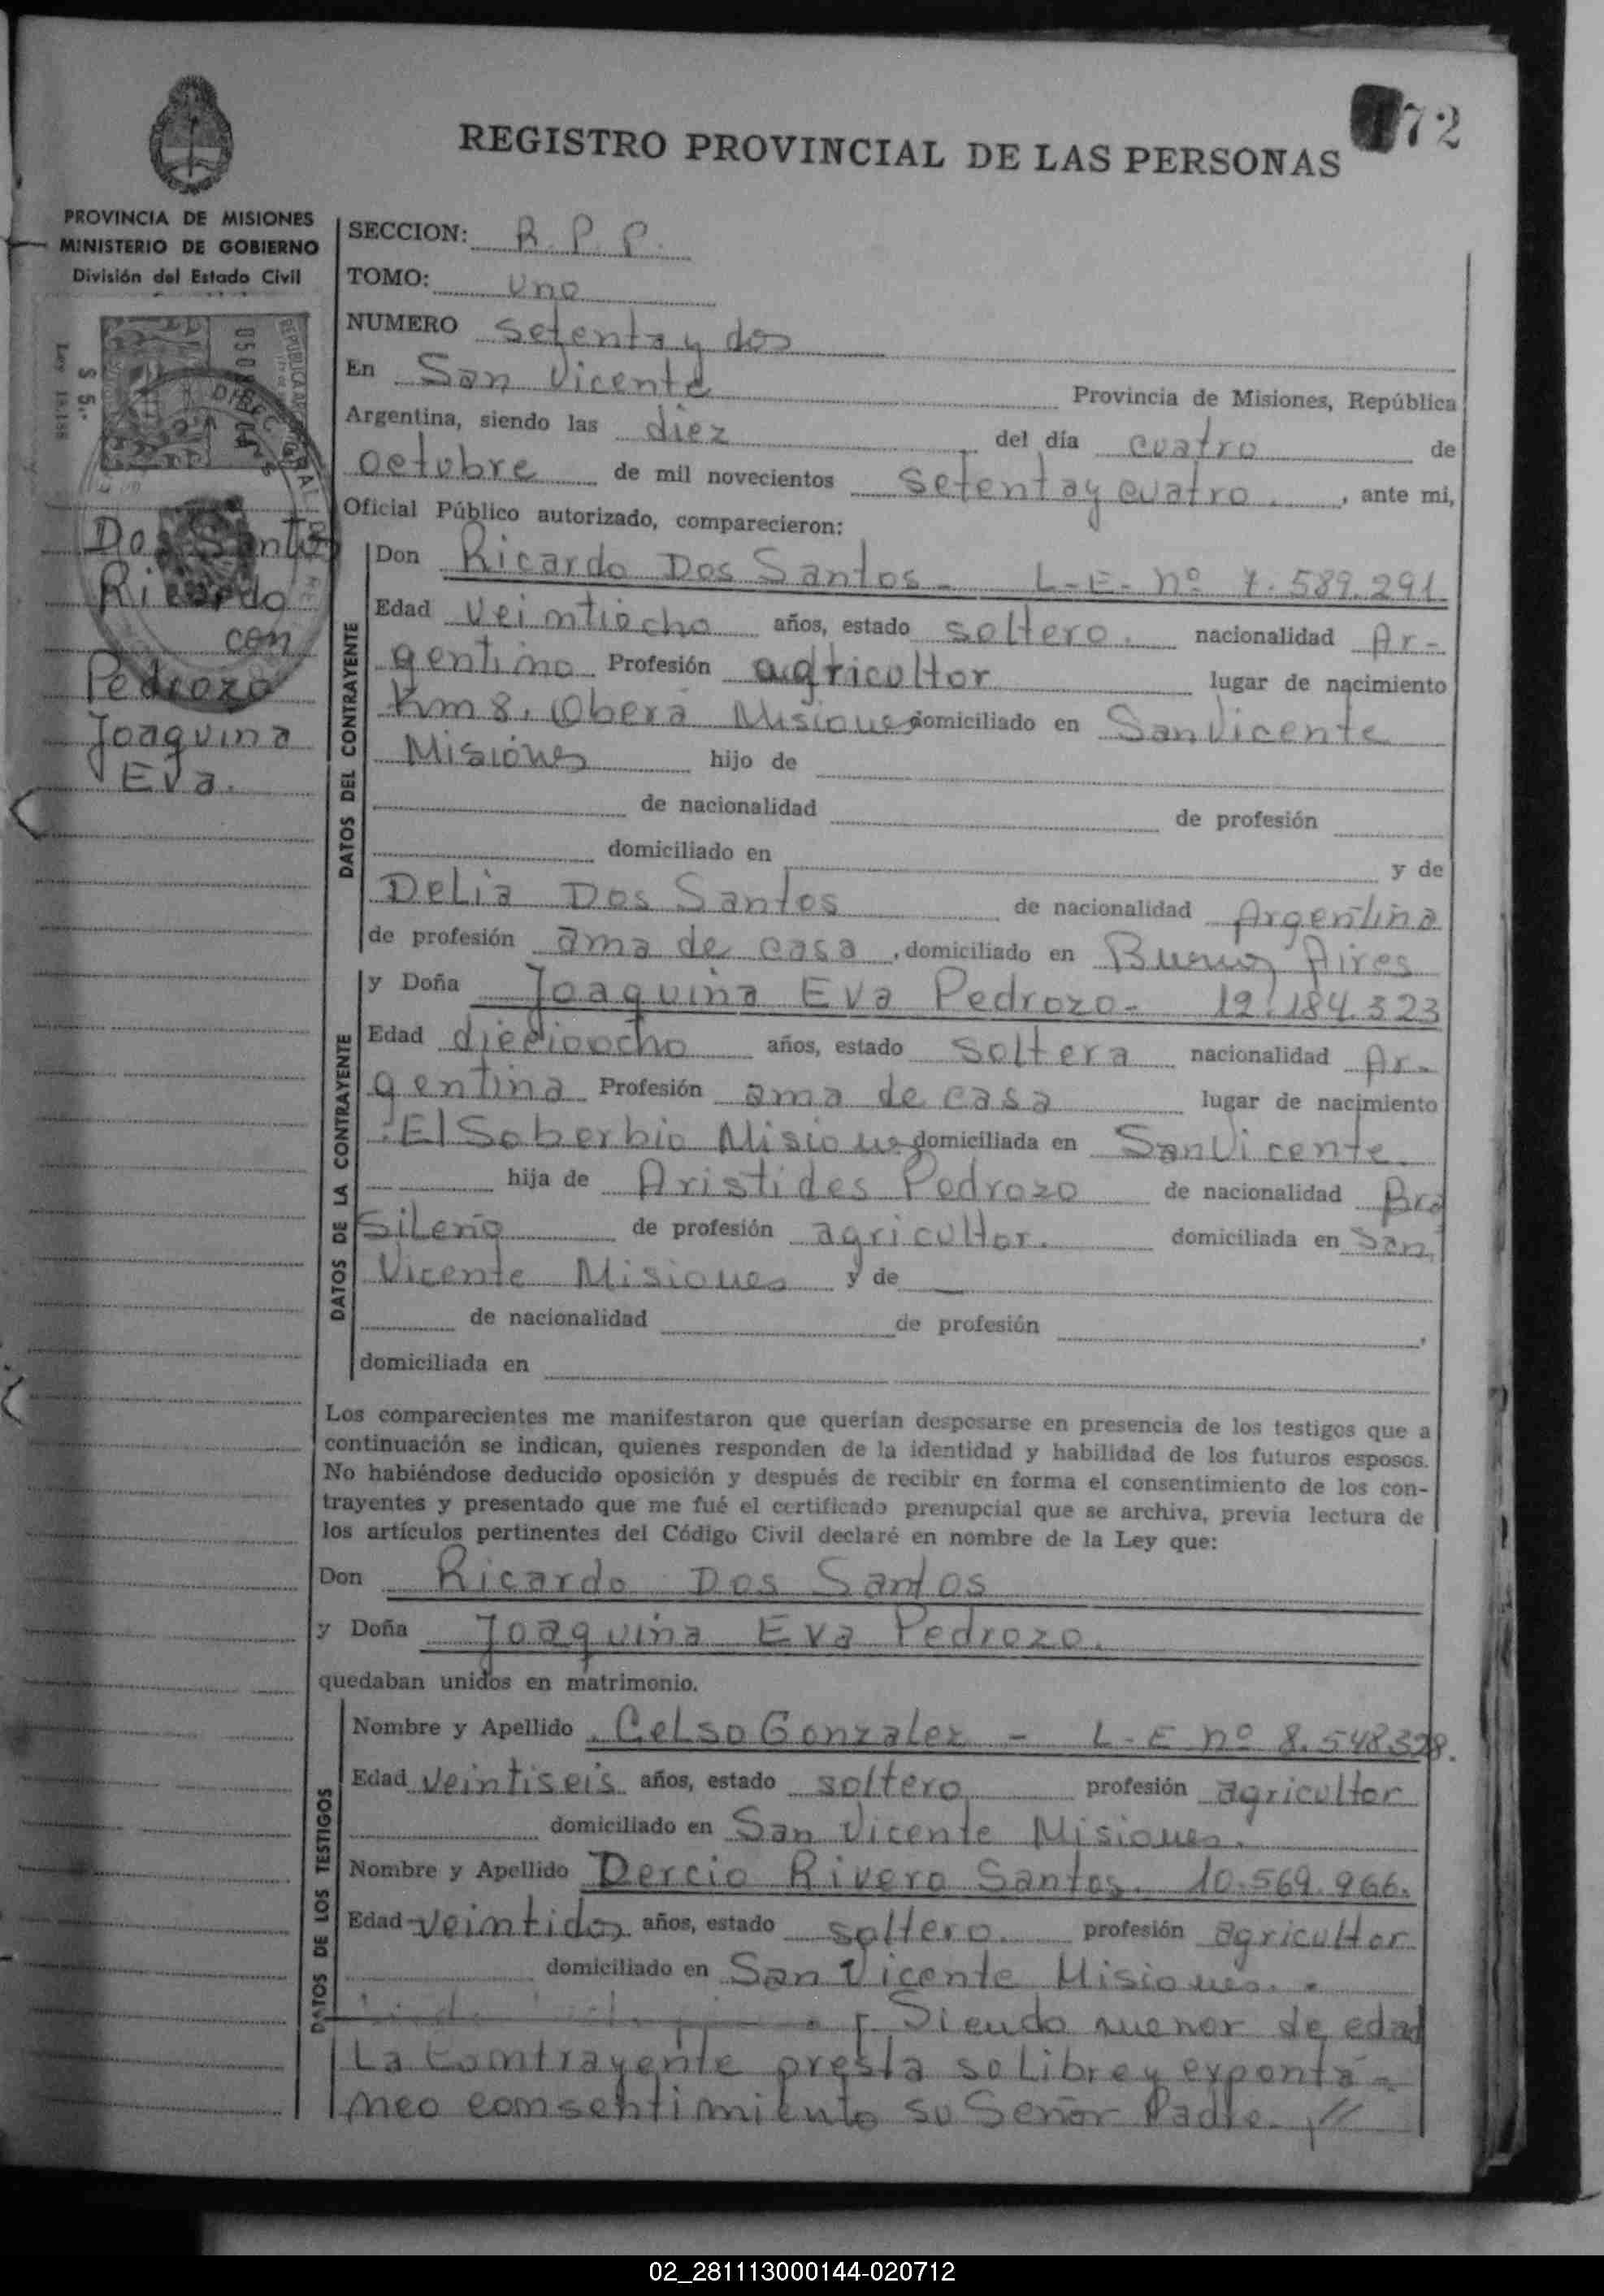 72
REGISTRO PROVINCIAL DE LAS PERSONAS
PROVINCIA DE MISIONES
MINISTERIO DE GOBIERNO
División del Estado Civil
Dos Santos
Ricardo
con
Pedrozo
Joaquina
Eva.
SECCION: R. P. P.
TOMO: uno
NUMERO setenta y dos
En San Vicente Provincia de Misiones, República
Argentina, siendo las diez del día cuatro de
octubre de mil novecientos setenta y cuatro. , ante mi,
Oficial Público autorizado, comparecieron:
DATOS DEL CONTRAYENTE
Don Ricardo Dos Santos - L-E- nº 7.589.291.
Edad veintiocho años, estado soltero. nacionalidad Ar-
gentino Profesión agricultor lugar de nacimiento
Km 8. Oberá Misiones domiciliado en San Vicente
Misiones hijo de
de nacionalidad de profesión
domiciliado en y de
Delia Dos Santos de nacionalidad Argentina
de profesión ama de casa , domiciliado en Buenos Aires
DATOS DE LA CONTRAYENTE
y Doña Joaquina Eva Pedrozo - 12.184.323
Edad dieciocho años, estado soltera nacionalidad Ar-
gentina Profesión ama de casa lugar de nacimiento
El Soberbio Misiones domiciliada en San Vicente.
hija de Aristides Pedrozo de nacionalidad Bra
sileño de profesión agricultor. domiciliada en San
Vicente Misiones y de —
de nacionalidad de profesión ,
domiciliada en
Los comparecientes me manifestaron que querían desposarse en presencia de los testigos que a
continuación se indican, quienes responden de la identidad y habilidad de los futuros esposos.
No habiéndose deducido oposición y después de recibir en forma el consentimiento de los con-
trayentes y presentado que me fué el certificado prenupcial que se archiva, previa lectura de
los artículos pertinentes del Código Civil declaré en nombre de la Ley que:
Don Ricardo Dos Santos
y Doña Joaquina Eva Pedrozo.
quedaban unidos en matrimonio.
DATOS DE LOS TESTIGOS
Nombre y Apellido Celso Gonzalez - L-E nº 8.548.328.
Edad veintiseis años, estado soltero profesión agricultor
domiciliado en San Vicente Misiones.
Nombre y Apellido Dercio Rivero Santos. 10.569.966.
Edad veintidos años, estado soltero. profesión agricultor
domiciliado en San Vicente Misiones.
Siendo menor de edad
La contrayente presta so libre y expontá-
neo consentimiento su Señor Padre. //
02_281113000144-020712